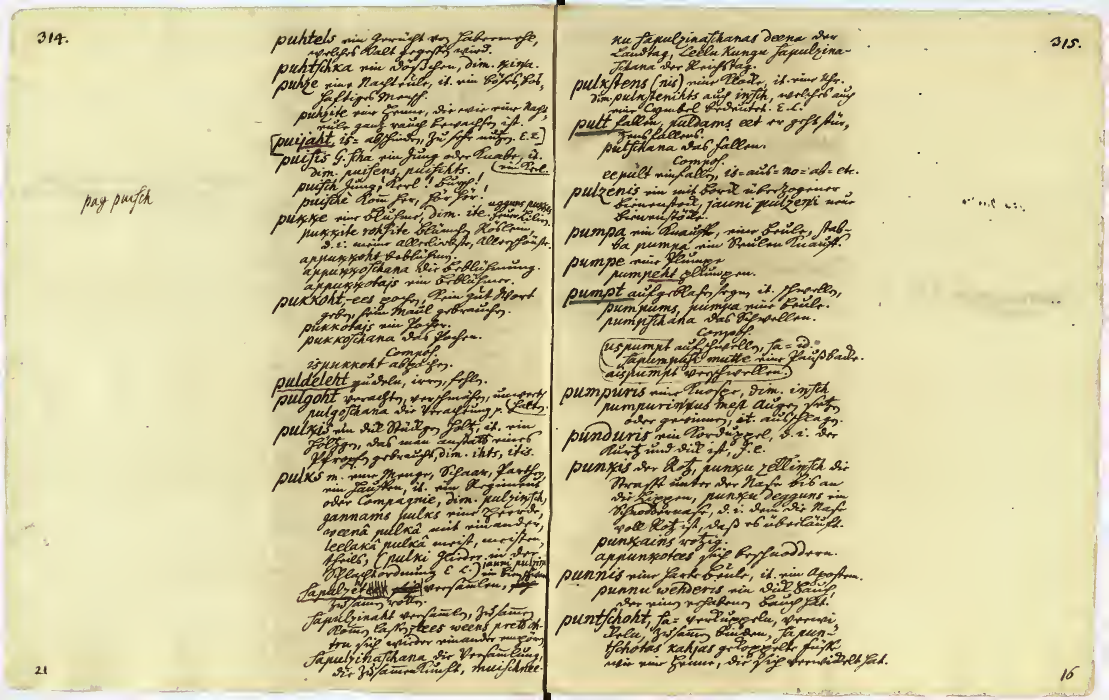 314.
puhtels ein Gericht von Habermehl,
welches Kalt gegessen wird.
puhtschka ein Döschen, dim. žina.
puhze eine Nachteule, it. ein böser, bos-
haftiger Mensch.
puhzite eine Henne, die wie eine Nacht
eule ganz rauch bewachsen ist.
puijaht, is= E.L.
puisis G. scha ein Jung oder Knabe, it.
dim. puisens, puischkts. ein Kerl.
puisch Jung! Kerl! Bursch!
puische Kom her, hör her.
pag puisch
pukke eine Blume, dim. ite.
pukkite rohsite Blümch Röslein,
d.i. meine allerliebste, Allerschönste.
appukkoht beblühmen.
appukkoschana die Beblühmung.
appukkotajs ein Beblühmer.
pukkoht, ees pochen, Kein gut Wort
geben, sein Maul gebrauchen.
pukkotajs ein Pocher.
pukkoschana das Pochen.
Compos.
ispukkoht abpochen.
puldeleht irren, fehlen.
pulgoht verachten, verschmähen, unwerth
pulgoschana die Verachtung halten.
pulkis ein dik Stükgen Holz, it. ein
Höltzgen, das man anstatt eines
Pfropfs gebraucht, dim. ihts, itis.
pulks m. eine Menge, Schaar, Parthey
ein Hauffen, it. ein Regiment
oder Compagnie, dim. pulzinsch,
gannams pulks eine Heerde,
weenâ pulkâ mit einander,
leelakâ pulkâ meist, meisten-
theils, (pulki Glieder in der
Schlachtordnung E.L.)
sapulzet versamlen,
zusamen rotten.
sapulzinaht versamlen, zusamen
Komen lassen, tees weens prett oh-
tru sich wieder einander empören
sapulzinaschana die Versamlung,
die Zusamenkunft, muischnee-
21
315.
ku sapulzinaschanas deena der
Landtag, Leela Kungu sapulzina-
schana der Reichstag.
pulkstens (nis) eine Klocke, it. eine Uhr.
dim. pulkstenihts auch insch, welches auch
eine Cymbel bedeutet. E.L.
pult fallen, puldams eet er geht stür-
zens fallens.
pulschana das fallen.
Compos.
eepult einfallen, is=aus=no=ab= etc.
pulzenis ein mit Bork überzogener
Bienenstok, jauni pulzeni neue
Bienenstöke.
pumpa ein Knauff, eine Beule, stab-
ba pumpa ein Seulen Knauff.
pumpe eine Plumpe
pumpeht plumpen.
pumpt aufgeblasen seyn, it. schwellen,
pumpums, pumpa eine Beule.
pumpschana das Schwellen.
Compos.
uspumpt aufschwellen, sa=id=
sapumpusi mutte eine Pausbacke.
aispumpt verschwellen.
pumpuris eine Knospe, dim. insch
pumpurinkus mest Augen setzen
oder gewinnen, it. ausschlagen.
punduris ein Kordüppel, d.i. der
Kurtz und dik ist, J.L.
punkis der Rotz, punku zellinsch die
Strasse unter der Nase bis an
die Lippen, punku degguns ein
Schnodernase, d.i. dem die Nase
voll Rotz ist, daß es überläuft.
punkains rotzig.
appunkotees sich beschnoddern.
punnis eine harte Beule, it. ein Apostem.
punnu wehderis ein dik Bauch,
der einen erhabenen Bauch hat.
puntschoht, sa= verdüppeln, verwi-
keln, zusamen binden, sapun-
tschotas kahjas
wie eine Henne, die sich verwikelt hat.
16